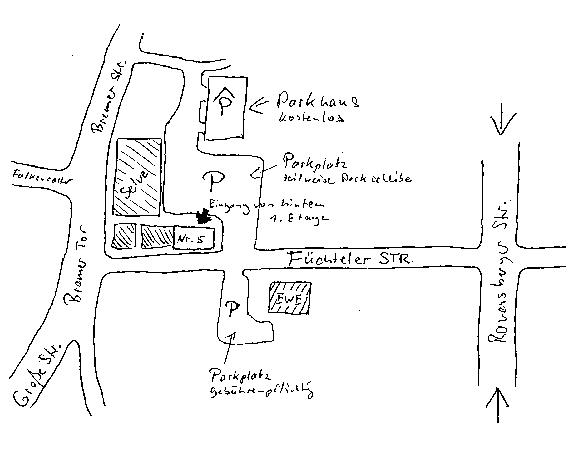 Bremer Str.
P
Parkhaus
kostenlos
Parkplatz
teilweise Parkscheibe
P
Eingang von hinten
1. Etage
Nr. 5
Bremer Tor
Füchteler STR.
Ravensberger Str.
P
EWE
Große Str.
Parkplatz
gebührenpflichtig